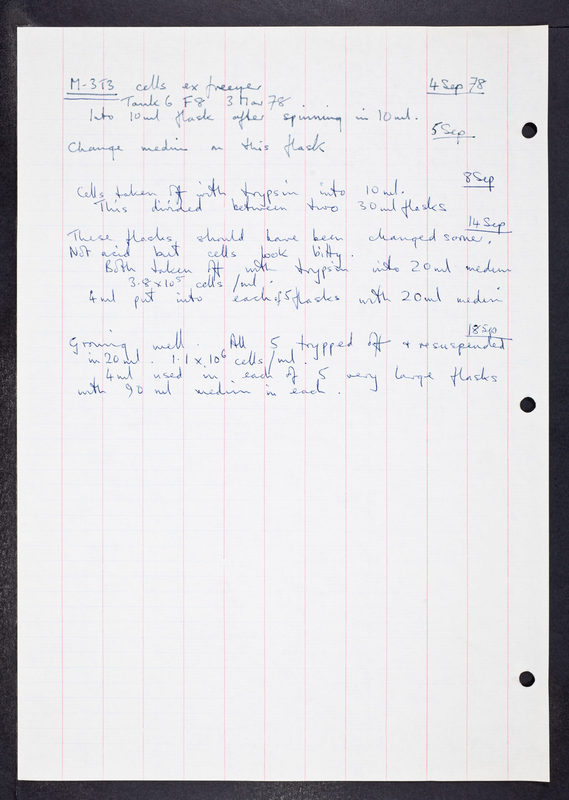 M-3T3 cells ex freezer 4 Sep 78
Tank 6 F8 3 Mar 78
Into 10ml flask after spinning in 10ml.
5 Sep
Change medium on this flask
8 Sep
Cells taken off with trypsin into 10ml.
This divided between two 30ml flasks
14 Sep
These flasks should have been changed sooner.
Not acid but cells look bitty.
Both taken off with trypsin into 20ml medium
3.8 x 10⁵ cells/ml.
4ml put into each of 5 flasks with 20ml medium
18 Sep
Growing well. All 5 trypped off & resuspended
in 20ml. 1.1 x 10⁶ cells/ml.
4ml used in each of 5 very large flasks
with 90 ml medium in each.